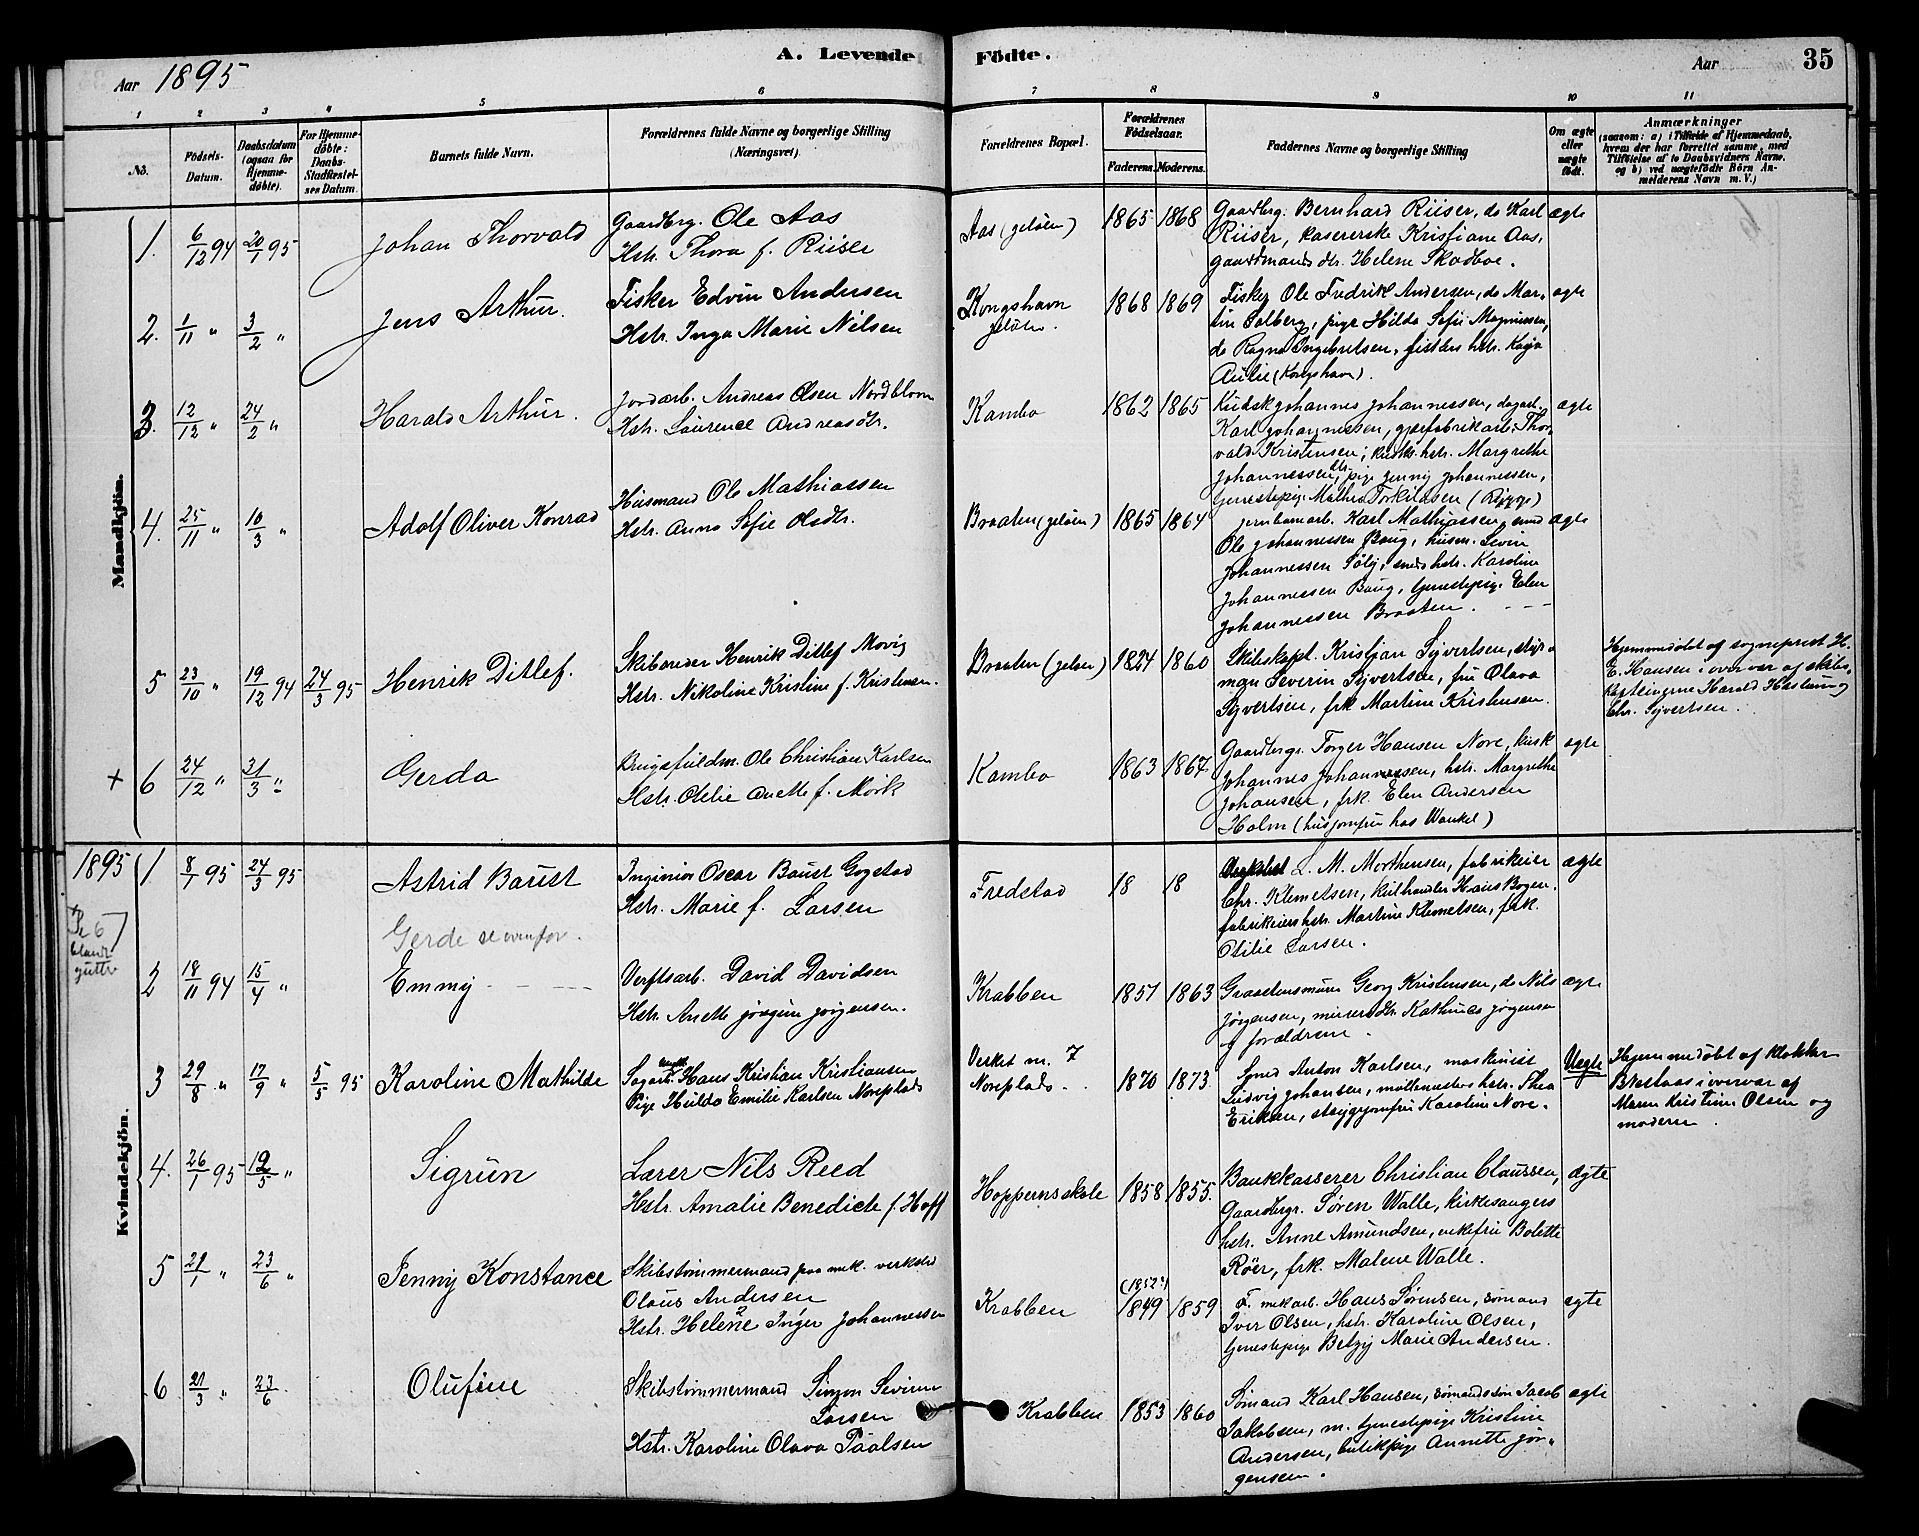 Aar 1895
A. Levende Födte.
Aar
35
1 2 3 4 5 6 7 8 9 10 11
No.
Födsels-Datum.
Daabsdatum (ogsaa för Hjemme-döbte).
For Hjemme-döbte: Daabs-Stadfæstel-ses Datum.
Barnets fulde Navn.
Forældrenes fulde Navne og borgerlige Stilling (Næringsvei).
Forældrenes Bopæl.
Forældrenes Födselsaar.
Faderens. Moderens.
Faddernes Navne og borgerlige Stilling
Om ægte eller uægte födt.
Anmærkninger
(saasom: a) i Tilfælde af Hjemmedaab, hvem der har forrettet samme, med Tilföielse af to Daabsvidners Navne, og b) ved uægtefödte Börn An-melderens Navn m. V.)
Mandkjön.
1. 6/12 94 20/1 95 Johan Thorvald
Gaardbrg. Ole Aas
Hstr. Thora f. Riiser
Aas (Jeløen) 1865 1868
Gaardbrg. Bernhard Riiser, do Karl
Riiser, kasererske Kristiane Aas,
gaardmands dtr. Helene Skadboe.
ægte
2. 1/11 " 3/2 " Jens Arthur.
Fisker Edvin Andersen
Hstr. Inga Marie Nilsen
Kongshavn
Jeløen. 1868 1869
Fisker Ole Fredrik Andersen, do Mar-
tin Solberg, pige Hilda Sofie Magnussen,
do Ragna Ingebretsen, fiskers hstr. Kaja
Aulie (Kongshavn).
ægte
3. 12/12 " 24/2 " Harald Arthur.
Jordarb. Andreas Olsen Nordblom
Hstr. Laurence Andreasdtr.
Kambo 1862 1865
Kudsk Johannes Johannessen, dagarb.
Karl Johannessen, gjærfabrikarb. Thor-
vald Kristensen, kudsks hstr. Margrethe
Johannessen, pige Jenny Johannessen,
tjenestepige Mathea Torkildsen (Rygge)
ægte
4. 25/11 " 10/3 " Adolf Oliver Konrad
Husmand Ole Mathiassen
Hstr. Anna Sofie Olsdtr.
Braaten (Jeløen) 1865 1864
Jernbanearb. Karl Mathiassen, smed
Ole Johannessen Baug, husm. Sevrin
Johannessen Solby, smeds hstr. Karoline
Johannessen Baug, tjenestepige Elen
Johannessen Braaten.
ægte
5 23/10 " 19/12 94 24/3 95 Henrik Ditlef.
Skibsreder Henrik Ditlef Movig
Hstr. Nikoline Kristine f. Kristensen.
Braaten (Jeløen) 1824 1860
Skibskapt. Kristjan Syvertsen, styr-
man Severin Syvertsen, fru Olava
Syvertsen, frk Martine Kristensen.
Hjemmedøbt af sogneprest H.
E. Hansen i overvær af skibs-
kapteinerne Harald Haslum og
Chr. Syvertsen.
+ 6 24/12 " 31/3 " Gerda
Brugsfuldm. Ole Christian Karlsen
Hstr. Otilie Anette f. Mörk
Kambo 1863 1867
Gaardbrgr. Torger Hansen Nore, kusk
Johannes Johannessen, hstr. Margrethe
Johansen, frk. Elen Andersen
Holm (husjomfru hos Wankel)
ægte
Kvindekjön.
1895 1 8/1 95 24/3 95 Astrid Baust
Inginiør Oscar Baust Gogstad
Hstr. Marie f. Larsen
Fredstad 18 18
L. M. Morthensen, fabrikeier
Chr. Klemetsen, kulhandler Hans Bogen,
fabrikeiers hstr. Martine Klemetsen, frk.
Otilie Larsen.
ægte
No 6
blandt
gutter
Gerde se ovenfor.
2 18/11 94 15/4 " Emmy
Verftsarb. David Davidsen
Hstr. Anette Jørgine Jørgensen.
Krabben 1857 1863
Graastensmurer Georg Kristensen, do Nils
Jørgensen, murers dtr. Kathinca Jørgensen
og forældrene.
ægte
3 29/8 " 17/9 " 5/5 95 Karoline Mathilde
Sagarb. Hans Kristian Kristiansen
Pige Hulda Emilie Karlsen Noreplads
Verket m. 7
Noreplads. 1870 1873.
Smed Anton Karlsen, maskinist
Ludvig Johansen, møllemesters hstr. Thea
Eriksen, strygejomfru Karoline Nore.
Uegte
Hjemmedøbt af klokker
Bkstaas i overvær af
Maren Kristine Olsen og
moderen.
4. 26/1 95 12/5 " Sigrun
Lærer Nils Reed
Hstr. Amalie Benedicte f. Hoff
Hoppernskole 1858 1855.
Bankkasserer Christian Claussen,
Gaardbrgr. Søren Walle, kirkesangers
hstr. Anne Amundsen, enkefru Bolette
Røer, frk. Malene Walle.
Ægte
5 21/1 " 23/6 " Jenny Konstance
Skibstømmermand paa mek. verksted
Olaus Andersen
Hstr. Helene Inger Johannessen
Krabben (1852?) 1849 1859
F. mekarb. Hans Sørensen, sømand
Iver Olsen, hstr. Karoline Olsen,
tjenestepige Betzy Marie Andersen.
ægte
6 21/3 " 23/6 Olufine
Skibstømmermand Simon Sivirin
Larsen
Hstr. Karoline Olava Paalsen
Krabben 1853 1860
Sømand Karl Hansen, sømandssøn Jacob
Jakobsen, m. tjenestepige Kristine
Andersen, butikpige Annette Jør-
gensen.
ægte